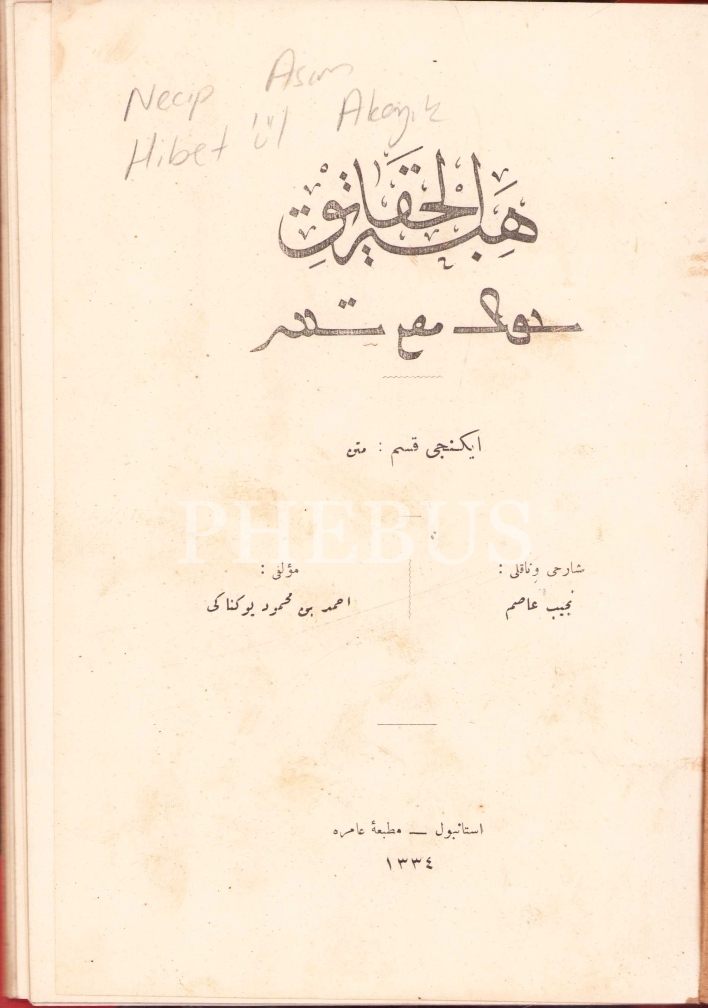 Necip Asım
Hibet'ül
هبة الحقائق
ایکنجی قسم : متن
PHEBUS
شارحی وناقلی :
نجیب عاصم
مؤلفی :
احمد بن محمود یوکناکی
استانبول — مطبعۀ عامره
١٣٣٤